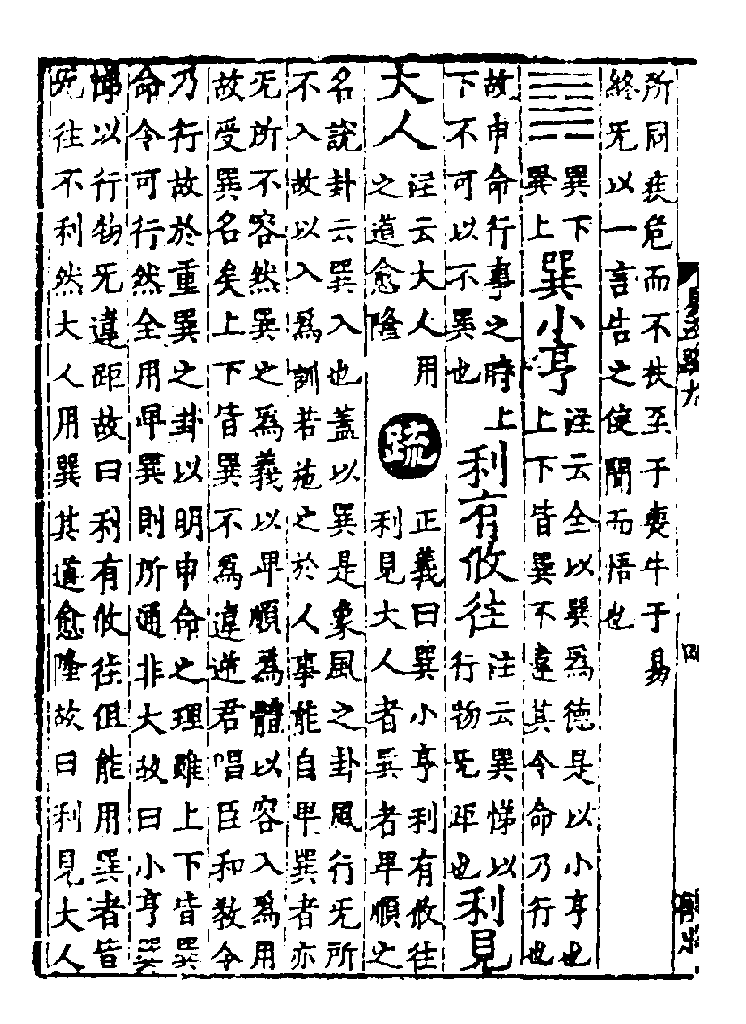 所同疾危而不扶至于喪牛于易
終无以一言告之使聞而悟也
巽下
巽上
巽小亨
注云全以巽為德是以小亨也
上下皆巽不違其令命乃行也
故申命行事之時上
下不可以不巽也
利有攸往
注云巽悌以
行物无距也
利見
大人
注云大人用
之道愈隆
疏
正義曰巽小亨利有攸往
利見大人者巽者卑順之
名說卦云巽入也蓋以巽是象風之卦風行无所
不入故以入為訓若施之於人事能自卑巽者亦
无所不容然巽之為義以卑順為體以容入為用
故受巽名矣上下皆巽不為違逆君唱臣和教令
乃行故於重巽之卦以明申命之理雖上下皆巽
命令可行然全用卑巽則所通非大故曰小亨巽
悌以行物无違距故曰利有攸往但能用巽者皆
无往不利然大人用巽其道愈隆故曰利見大人